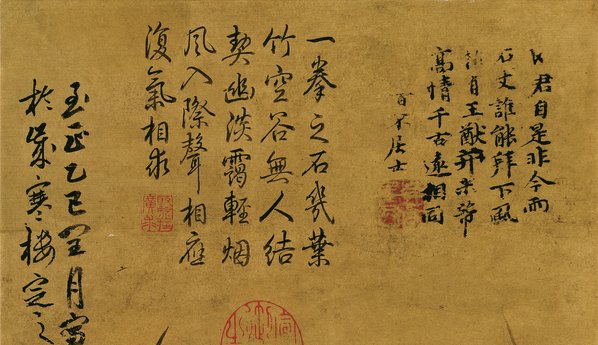 君自是非今雨
石丈誰能拜下風
有王猷并米芾
高情千古遠相同
百不居士
一拳之石幾葉
竹空谷無人結
契幽淡靄輕烟
風入際聲相應
復氣相求
至正乙巳月
於歲寒樓定之